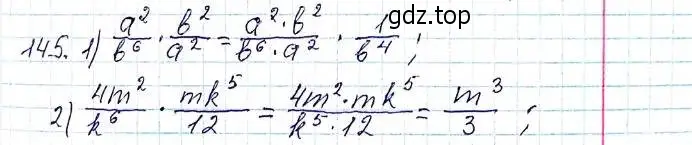 gdz.top
145. 1) a²/в⁶ · в²/a² = a²·в²/в⁶·a² · 1/в⁴ ;
2) 4m²/k⁶ · mk⁵/12 = 4m²·mk⁵/k⁵·12 = m³/3 ;